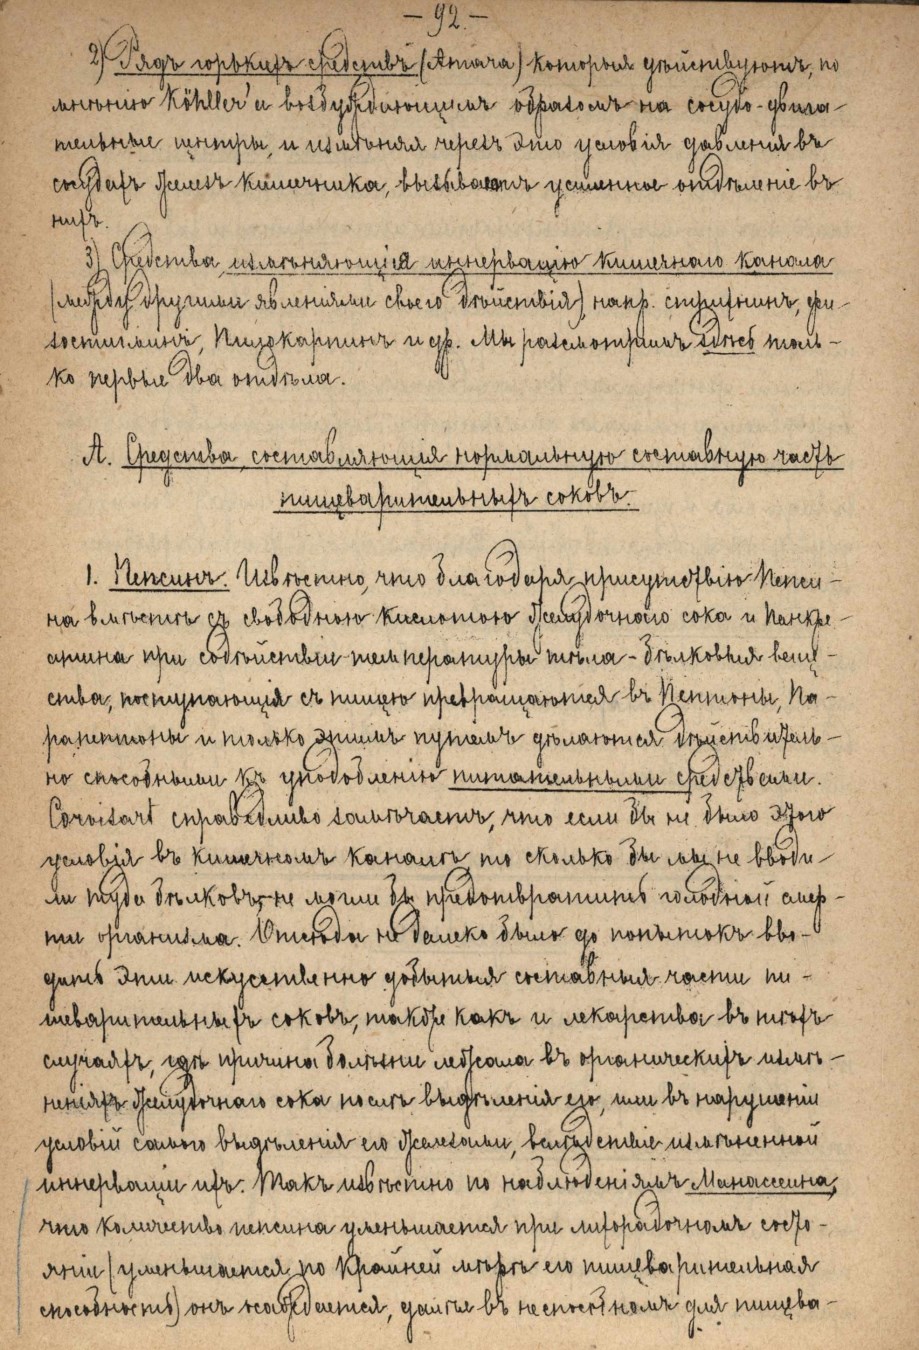 – 92. –
2) Рядъ горькихъ средствъ (Amara) которыя дѣйствуютъ, по
мнѣнію Köhller'a возбуждающимъ образомъ на сосудо-двига-
тельные центры, и измѣняя черезъ это условія давленія въ
сосудахъ железъ кишечника, вызываетъ усиленное отдѣленіе въ
нихъ.
3) Средства, измѣняющія иннервацію кишечнаго канала
(между другими явленіями своего дѣйствія), напр. стрихнинъ, фи-
зостигминъ, Пилокарпинъ и др. Мы разсмотримъ здѣсь толь-
ко первые два отдѣла.
А. Средства, составляющія нормальную составную часть
пищеварительныхъ соковъ.
1. Пепсинъ. Извѣстно, что благодаря присутствію Пепси-
на вмѣстѣ съ свободною кислотою желудочнаго сока и Панкре-
атина при содѣйствіи температуры тѣла – бѣлковыя веще-
ства, поступающія съ пищею превращаются въ Пептоны, Па-
рапептоны и только этимъ путемъ дѣлаются дѣйствитель-
но способными къ уподобленію питательными средствами.
Corvisart справедливо замѣчаетъ, что если бы не было этого
условія въ кишечномъ каналѣ, то сколько бы мы не вводи-
ли туда бѣлковъ, – не могли бы предотвратить голодной смер-
ти организма. Отсюда не далеко было до попытокъ вво-
дить эти искуственно добытыя составныя части пи-
щеварительныхъ соковъ, также какъ и лекарства въ тѣхъ
случаяхъ, гдѣ причина болѣзни лежала въ органическихъ измѣ-
неніяхъ желудочнаго сока послѣ выдѣленія его, или въ нарушеніи
условій самого выдѣленія его железами, вслѣдствіе измѣненной
иннерваціи ихъ. Такъ извѣстно по наблюденіямъ Манассеина,
что количество пепсина уменьшается при лихорадочномъ состо-
яніи (уменьшается по крайней мѣрѣ его пищеварительная
способность) онъ осаждается, далѣе въ неспособномъ для пищева-